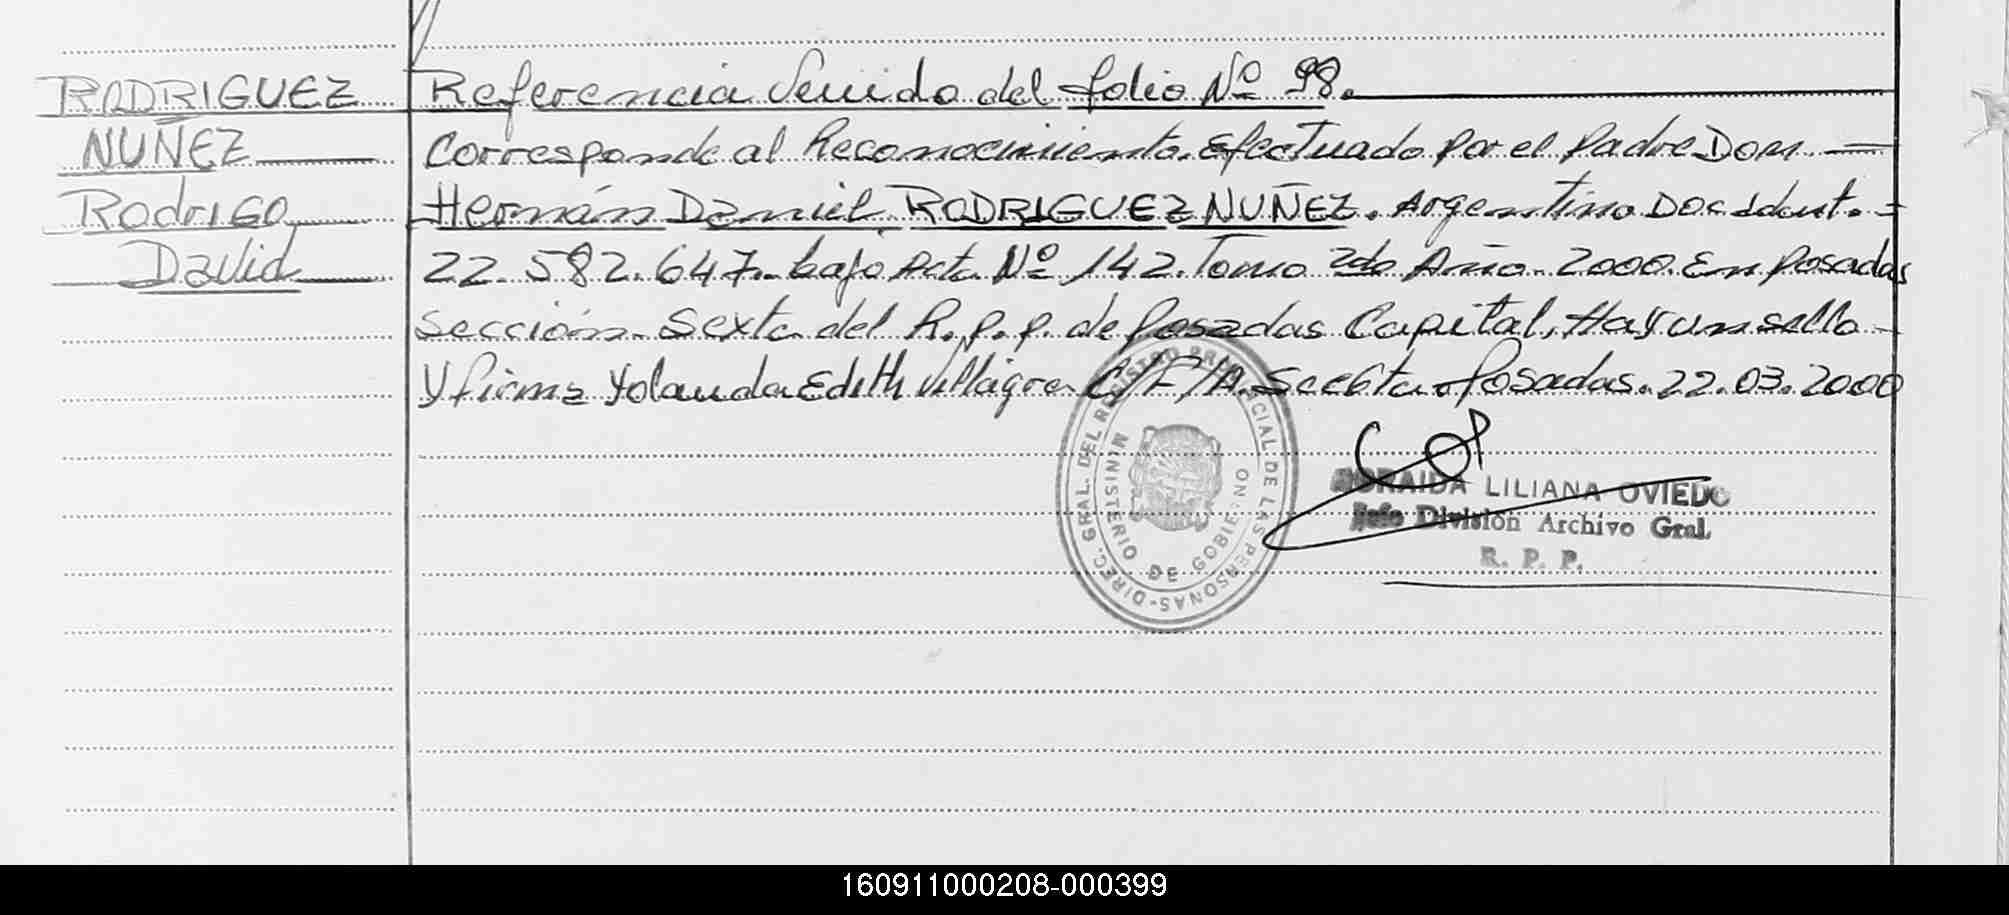 RODRIGUEZ
NUÑEZ
Rodrigo
David
Referencia Venido del folio Nº 98.
Corresponde al Reconocimiento Efectuado por el Padre Don
Hernán Daniel RODRIGUEZ NUÑEZ. Argentino Doc Ident.
22.582.647. bajo Acta Nº 142. Tomo 2do Año. 2000. En Posadas
Sección Sexta del R.P.P. de Posadas Capital, Hay un sello
Y firma Yolanda Edith Villagra Posadas. 22.03.2000
DIREC. GRAL. DEL REGISTRO PROVINCIAL DE LAS PERSONAS-
MINISTERIO DE GOBIERNO
LILIANA OVIEDO
Jefe División Archivo Gral.
R. P. P.
160911000208-000399